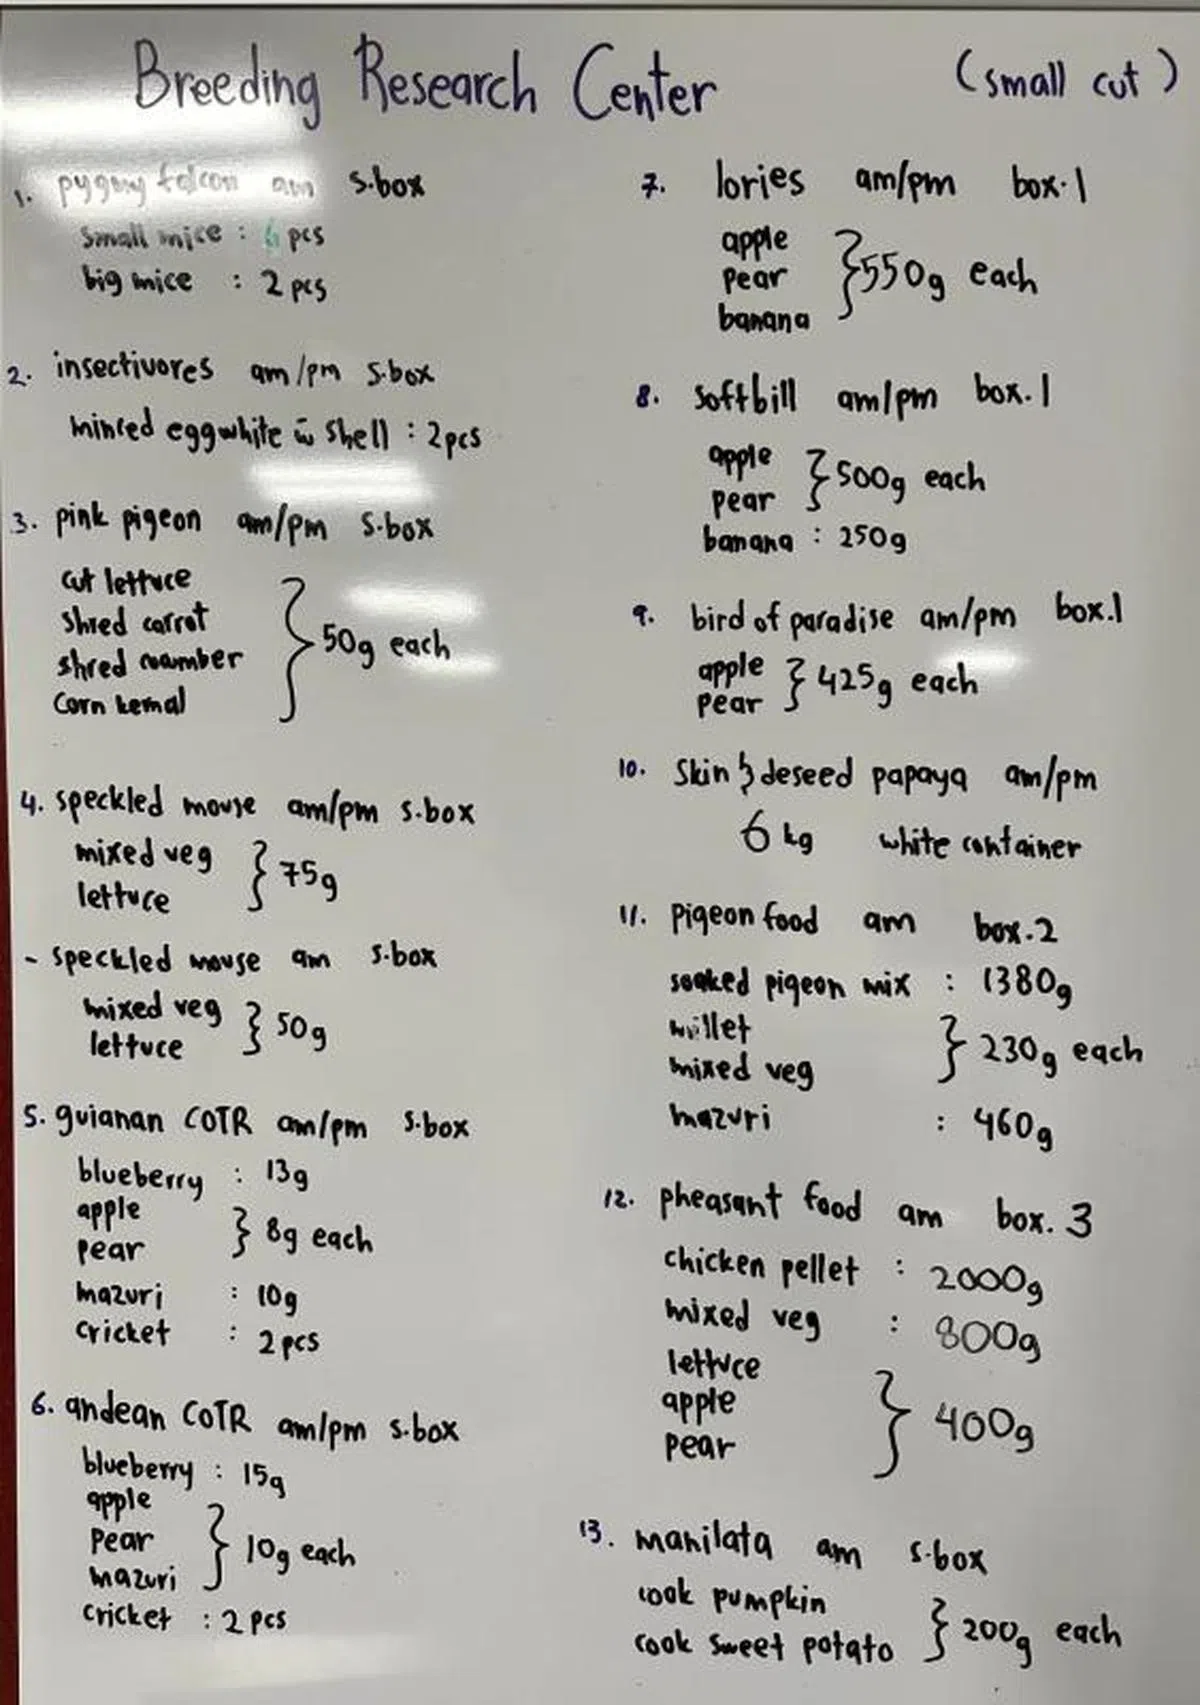 Breeding Research Center (small cut)
1. pygmy falcon am s.box
small mice : 6 pcs
big mice : 2 pcs
2. insectivores am/pm s.box
minced eggwhite w shell : 2pcs
3. pink pigeon am/pm s.box
cut lettuce
shred carrot
shred cucumber
corn kernal
} 50g each
4. speckled mouse am/pm s.box
mixed veg
lettuce
} 75g
- speckled mouse am s.box
mixed veg
lettuce
} 50g
5. guianan COTR am/pm s.box
blueberry : 13g
apple
pear
} 8g each
mazuri : 10g
cricket : 2 pcs
6. andean COTR am/pm s.box
blueberry : 15g
apple
pear
mazuri
} 10g each
cricket : 2 pcs
7. lories am/pm box.1
apple
pear
banana
} 550g each
8. softbill am/pm box.1
apple
pear
} 500g each
banana : 250g
9. bird of paradise am/pm box.1
apple
pear
} 425g each
10. skin & deseed papaya am/pm
6 kg white container
11. pigeon food am box.2
soaked pigeon mix : 1380g
millet
mixed veg
} 230g each
mazuri : 460g
12. pheasant food am box. 3
chicken pellet : 2000g
mixed veg : 800g
lettuce
apple
pear
} 400g
13. manilata am s.box
cook pumpkin
cook sweet potato
} 200g each